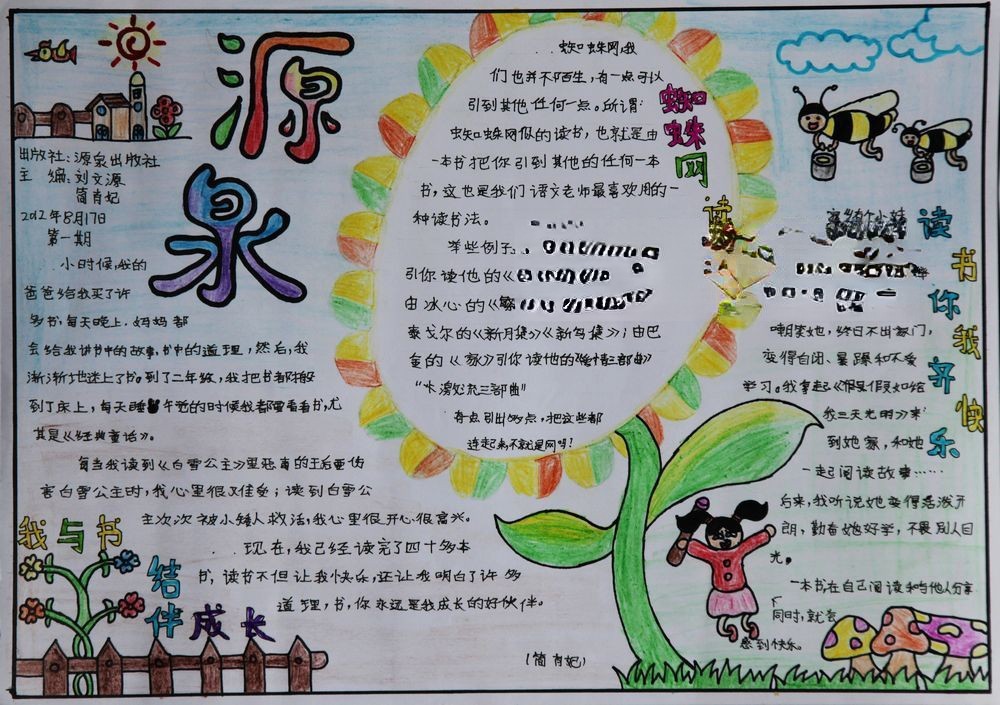 源泉
出版社:源泉出版社
主 编:刘文源
简肖妃
2012年8月17日
第一期
小时候,我的
爸爸给我买了许
多书,每天晚上,妈妈都
会给我讲书中的故事,书中的道理,然后,我
渐渐地迷上了书。到了二年级,我把书都搬
到了床上,每天睡午觉的时候我都要看看书,尤
其是《经典童话》。
每当我读到《白雪公主》里恶毒的王后要伤
害白雪公主时,我心里很难受;读到白雪公
主次次被小矮人救活,我心里很开心很高兴。
现在,我已经读完了四十多本
书,读书不但让我快乐,还让我明白了许多
道理,书,你永远是我成长的好伙伴。
我与书
结伴成长
蜘蛛网,我
们也并不陌生,有一点可以
引到其他任何一点。所谓
蜘蛛网似的读书,也就是由
一本书把你引到其他的任何一本
书,这也是我们语文老师最喜欢用的一
种读书法。
举些例子:
引你读他的《
由冰心的《繁
泰戈尔的《新月集》《新鸟集》;由巴
金的《家》引你读他的《爱情三部曲》
“激流三部曲”
每点引出好点,把这些都
连起来不就是网吗!
蜘蛛网
读
(简肖妃)
读书你我齐快乐
嘲笑她,终日不出家门,
变得自闭、暴躁和不爱
学习。我拿起《假如给
我三天光明》来
到她家,和她
一起阅读故事……
后来,我听说她变得活泼开
朗,勤奋好学,不畏别人目
光。
一本书在自己阅读和与他人分享
同时,就会
感到快乐。